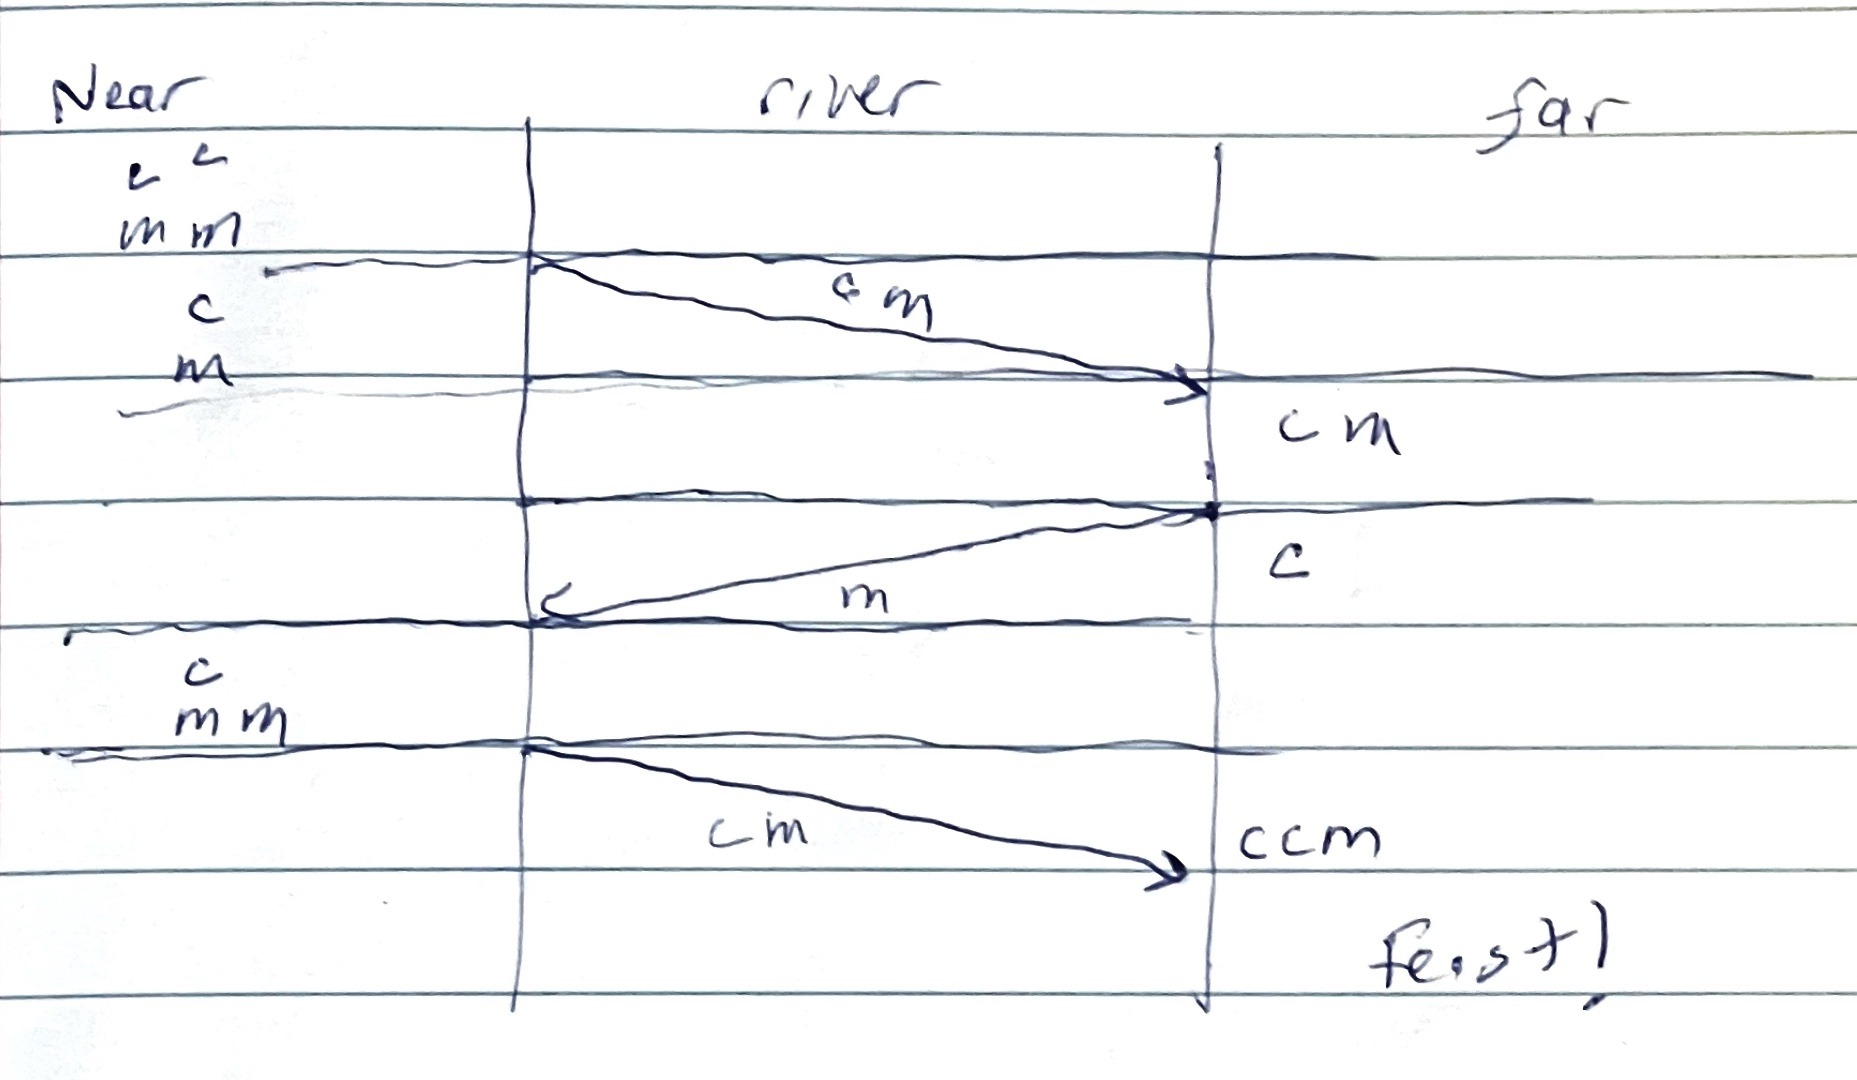 Near river far
c c
m m
c m
c
m
c m
c
m
c
m m
c m
c c m
Feast!